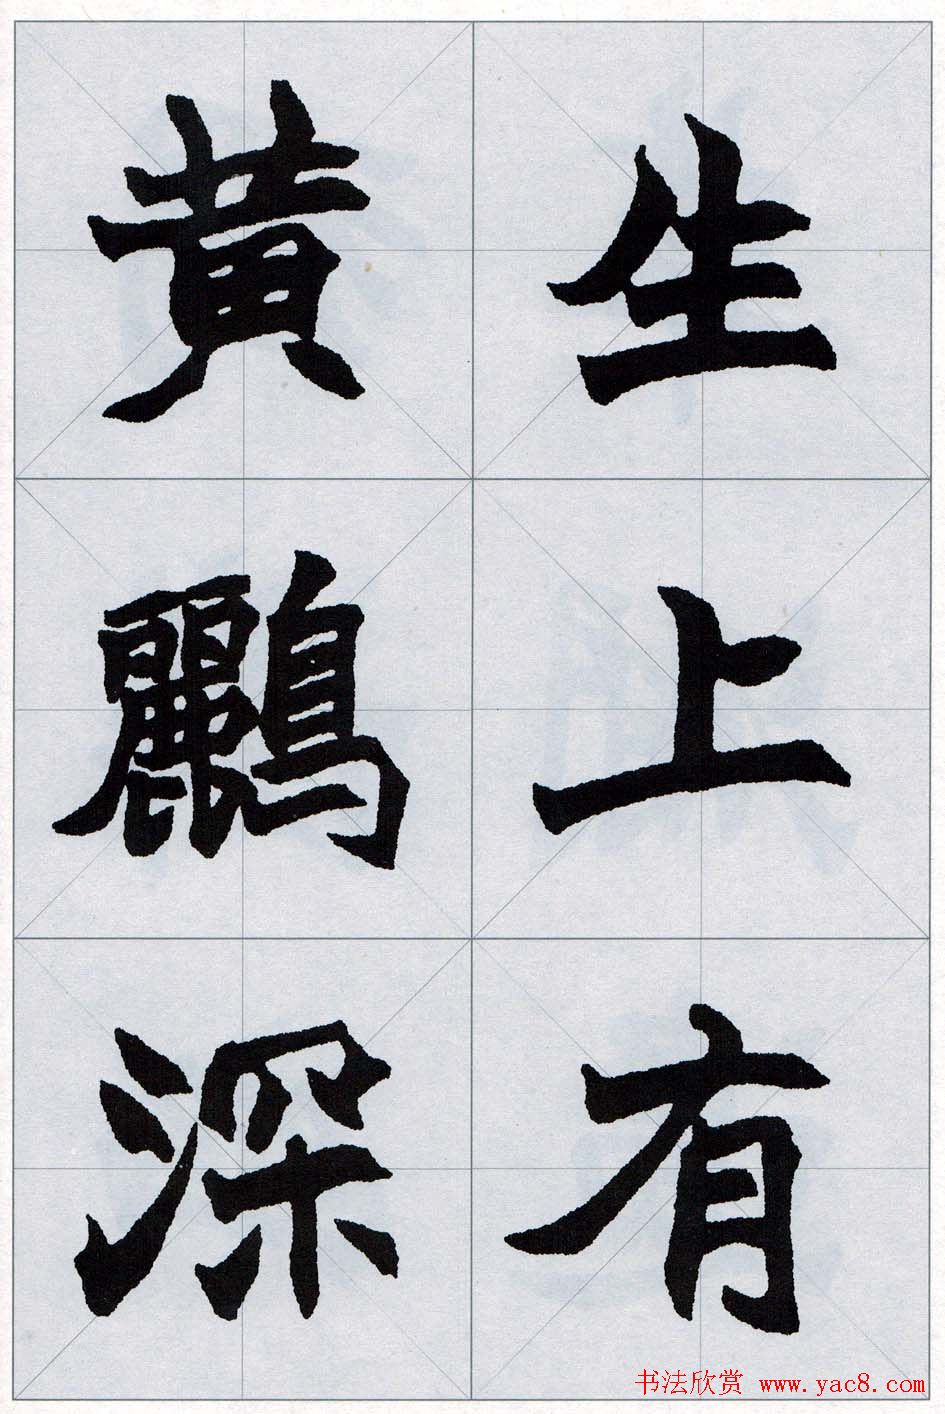 生上有
黄鸝深
书法欣赏 www.yac8.com